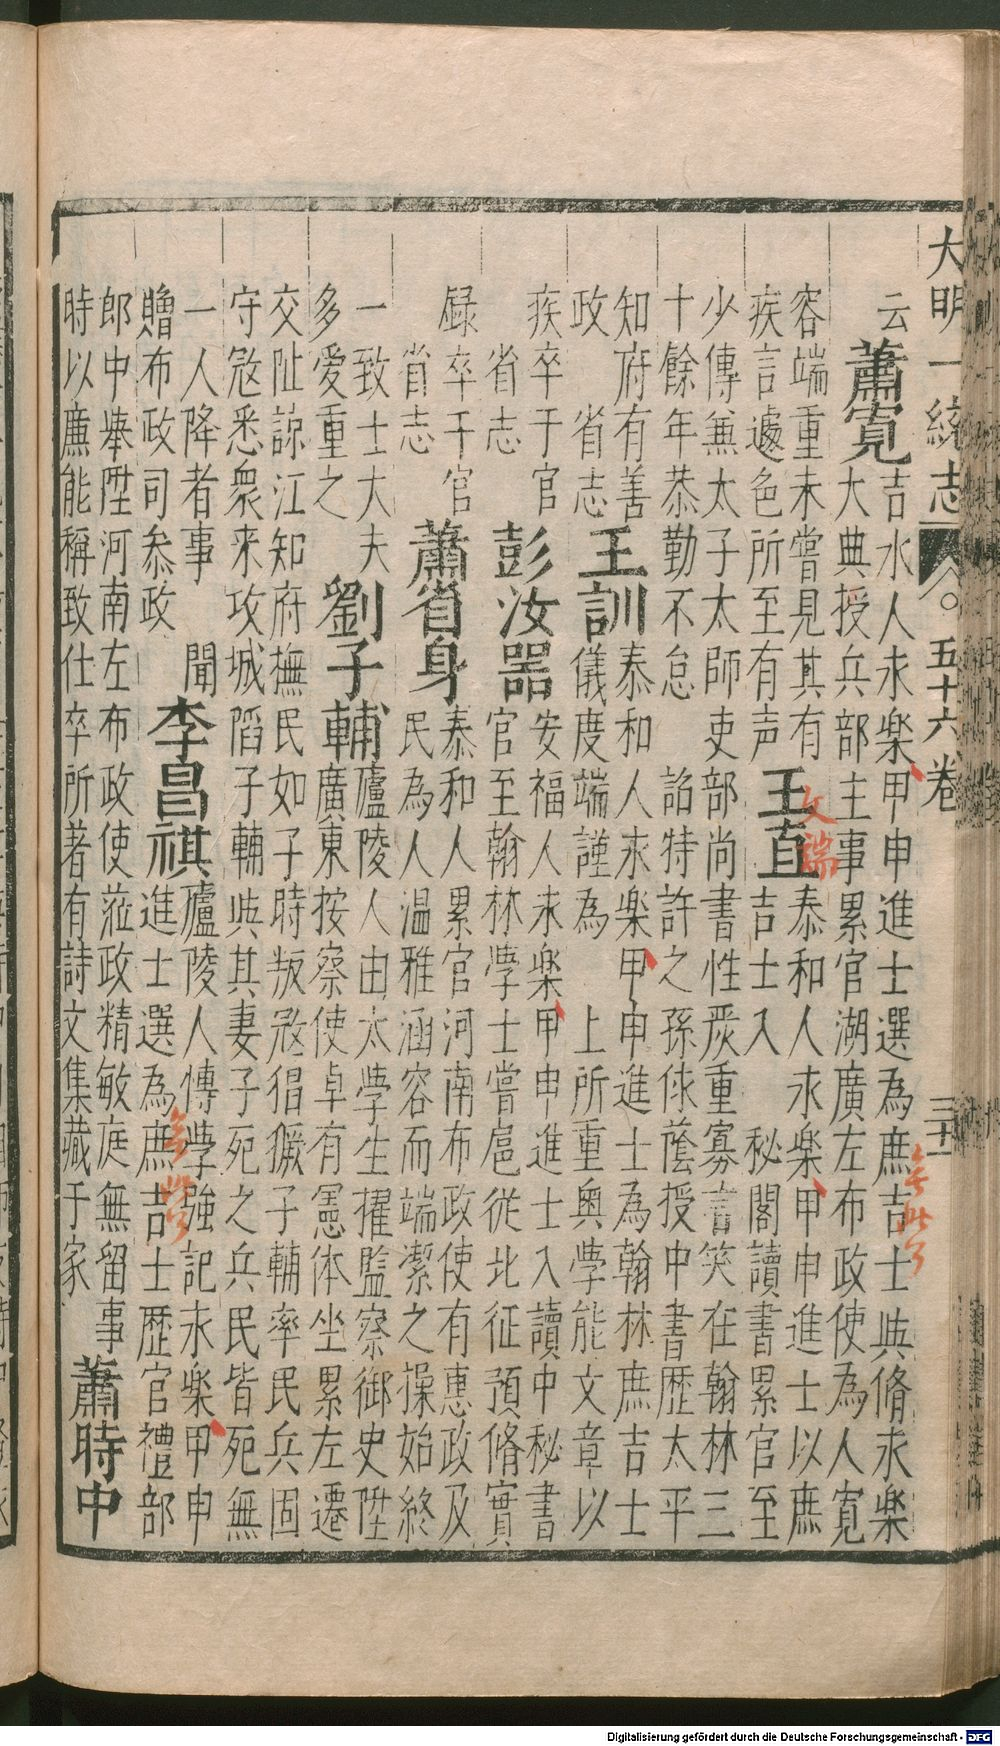 大明一統志 五十六卷 三十
云
蕭寬
吉水人永樂甲申進士選為庶吉士與脩永樂
大典授兵部主事累官湖廣左布政使為人寬
容端重未嘗見其有
疾言遽色所至有声
王直
文端
泰和人永樂甲申進士以庶
吉士入 秘閣讀書累官至
少傳兼太子太師吏部尚書性嚴重寡言笑在翰林三
十餘年恭勤不怠 詔特許之孫俅蔭授中書歷太平
知府有善
政 省志
王訓
泰和人永樂甲申進士為翰林庶吉士
儀度端謹為 上所重奧學能文章以
疾卒于官
省志
彭汝器
安福人永樂甲申進士入讀中秘書
官至翰林學士嘗扈從北征預脩實
録卒于官
省志
蕭省身
泰和人累官河南布政使有惠政及
民為人温雅涵容而端潔之操始終
一致士大夫
多愛重之
劉子輔
廬陵人由太學生擢監察御史陞
廣東按察使卓有憲体坐累左遷
交阯諒江知府撫民如子時叛冦猖獗子輔率民兵固
守冦悉衆来攻城䧟子輔與其妻子死之兵民皆死無
一人降者事 聞
贈布政司叅政
李昌祺
廬陵人慱學強記永樂甲申
進士選為庶吉士歷官禮部
郎中𪧐陞河南左布政使蒞政精敏庭無留事
時以廉能稱致仕卒所著有詩文集藏于家
蕭時中
Digitalisierung gefördert durch die Deutsche Forschungsgemeinschaft - DFG